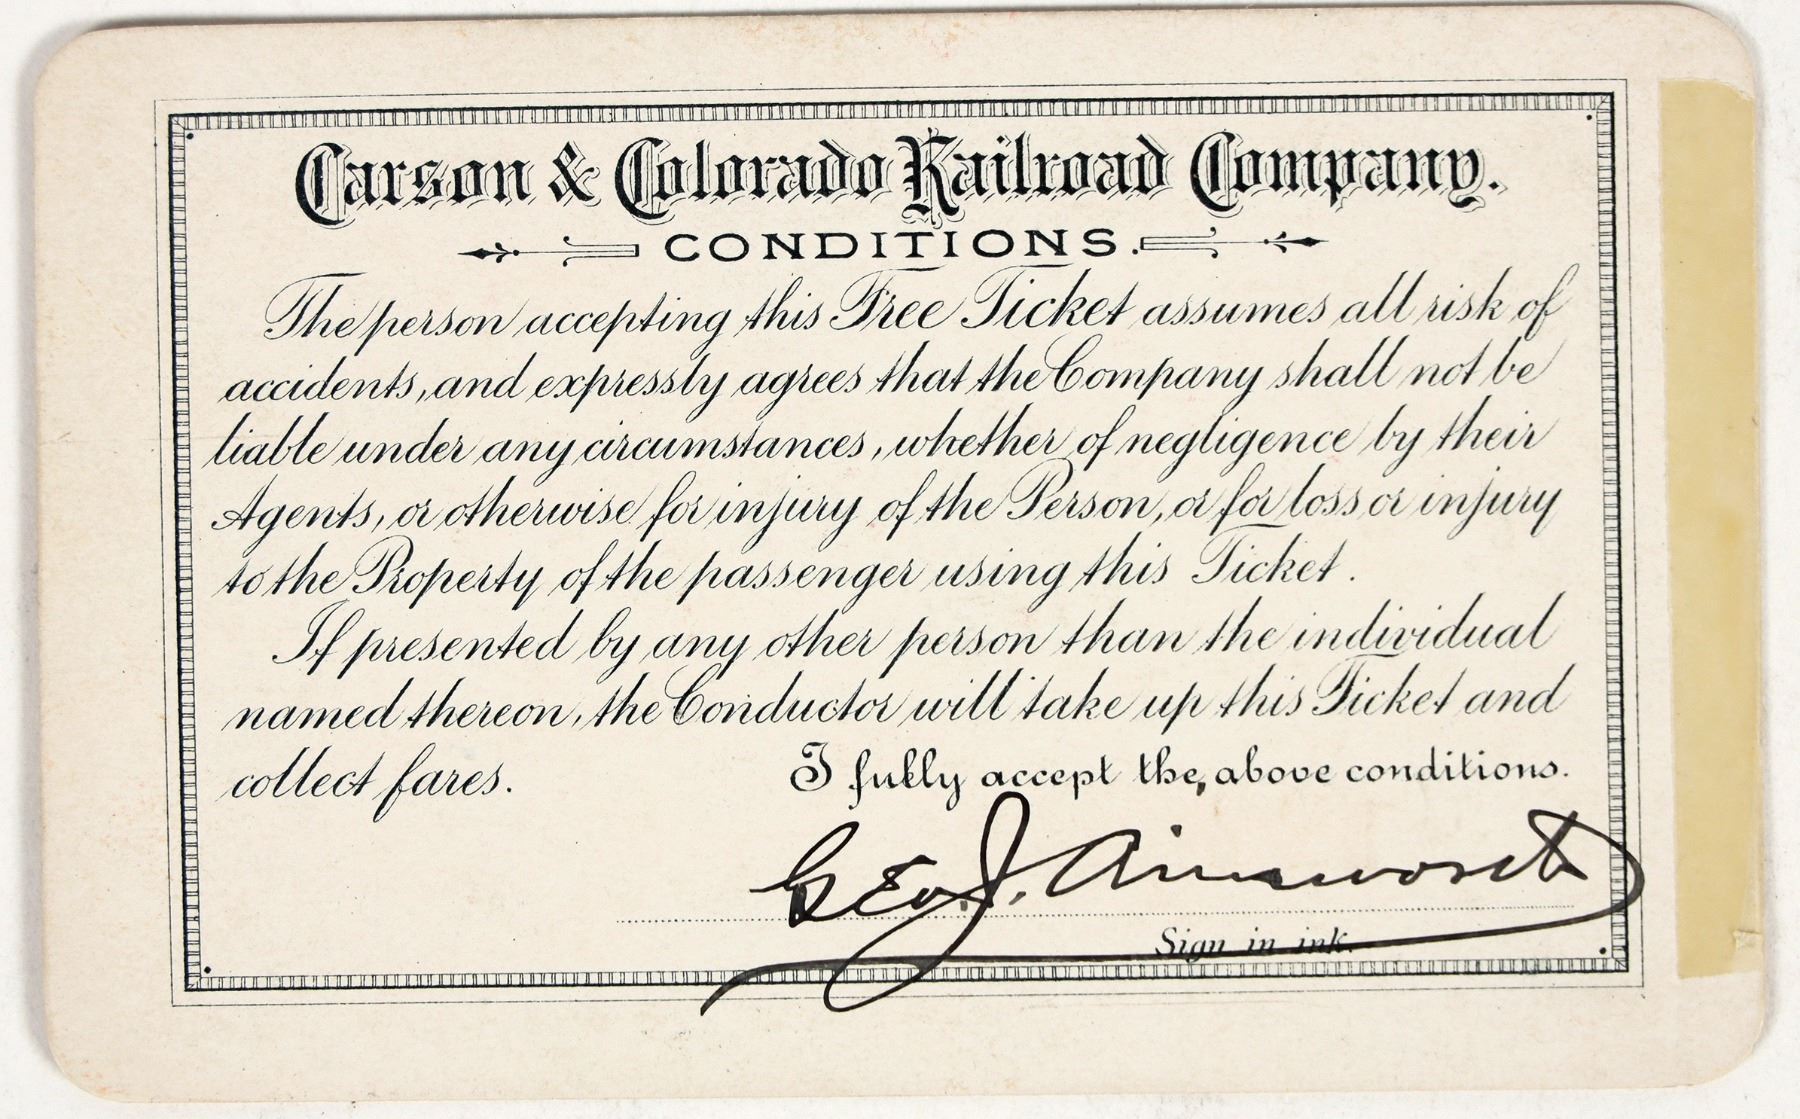 Carson & Colorado Railroad Company.
CONDITIONS.
The person accepting this Free Ticket assumes all risk of
accidents, and expressly agrees that the Company shall not be
liable under any circumstances, whether of negligence by their
Agents, or otherwise for injury of the Person, or for loss or injury
to the Property of the passenger using this Ticket.
If presented by any other person than the individual
named thereon, the Conductor will take up this Ticket and
collect fares.
I fully accept the above conditions.
Geo. J. Ainsworth
Sign in ink.